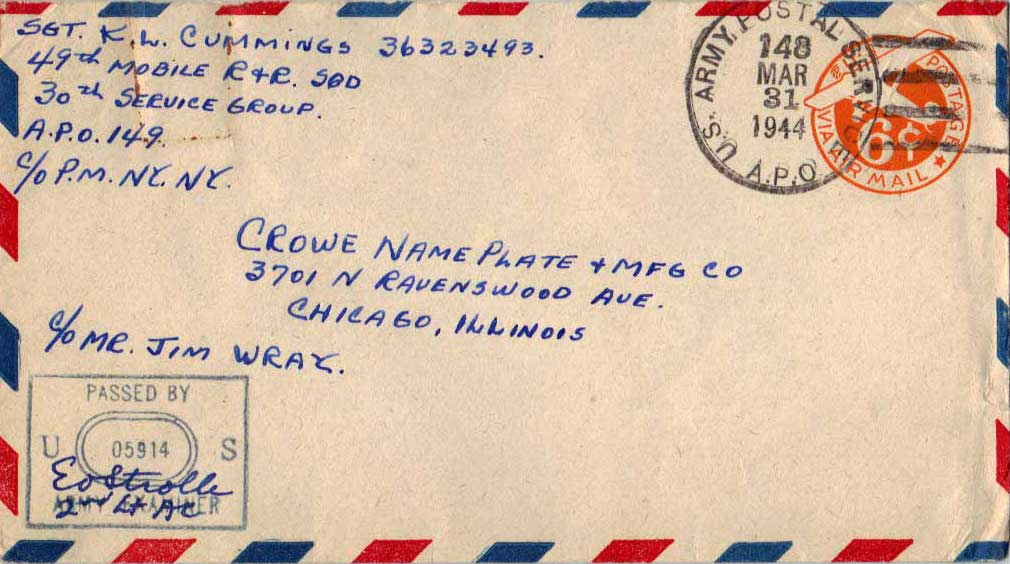 SGT. K. W. CUMMINGS 36323493.
49th MOBILE R+R. SQD
30th SERVICE GROUP.
A.P.O. 149.
c/o P.M. NY. NY.
U.S. ARMY POSTAL SERVICE
148
MAR
31
1944
A.P.O
POSTAGE
6¢
VIA AIR MAIL
CROWE NAME PLATE + MFG CO
3701 N RAVENSWOOD AVE.
CHICAGO, ILLINOIS
c/o MR. JIM WRAY.
PASSED BY
U 05914 S
ARMY EXAMINER
2nd Lt AC